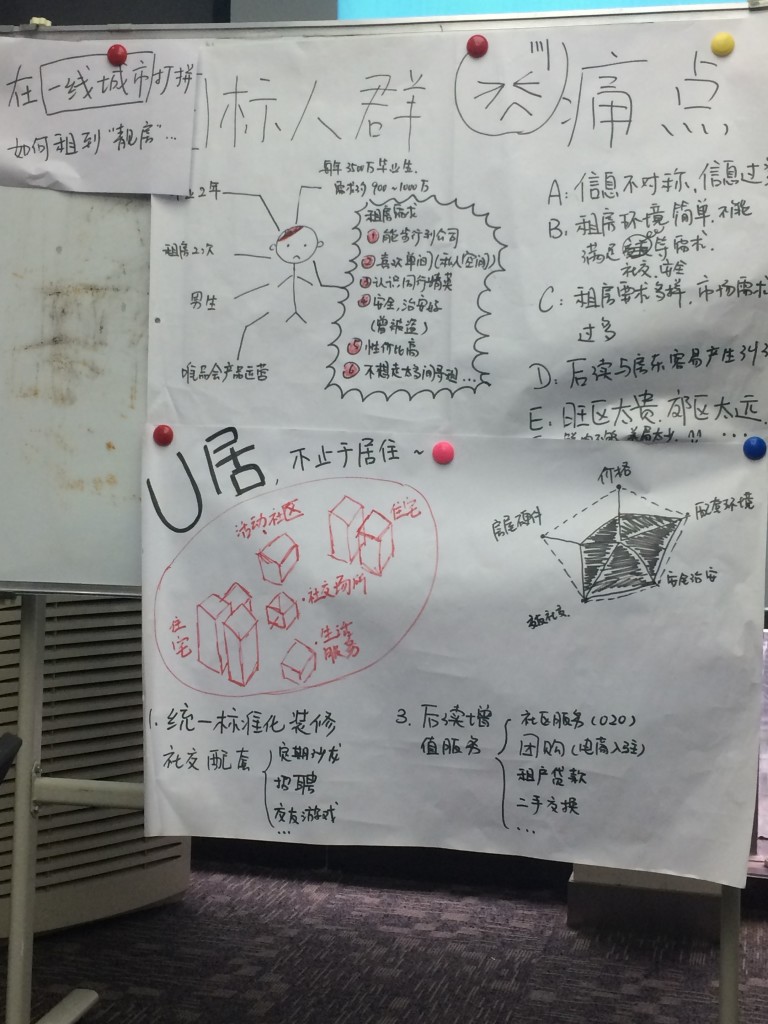 在一线城市打拼
如何租到“靓房”...
标人群
痛点
每年3500万毕业生.
需求约900~1000万
业2年
租房2次
男生
唯品会产品运营
租房需求
① 能步行到公司
② 喜欢单间(私人空间)
③ 认识同行精英
④ 安全,治安好
(曾被盗)
⑤ 性价比高
⑥ 不想走太多问寻租...
A: 信息不对称,信息过
B: 租房环境简单.不能
满足 等需求.
社交.安全
C: 租房需求多样,市场需求
过多
D: 后续与房东容易产生
E. 旺区太贵.郊区太远.
U居,不止于居住~
活动社区
住宅
社交场所
住宅
生活
服务
价格
房屋硬件
配套环境
安全治安
社交
1. 统一标准化装修
社交配套
定期沙龙
招聘
交友游戏
...
3. 后续增
值服务
社区服务(O2O)
团购(电商入驻)
租户贷款
二手交换
...